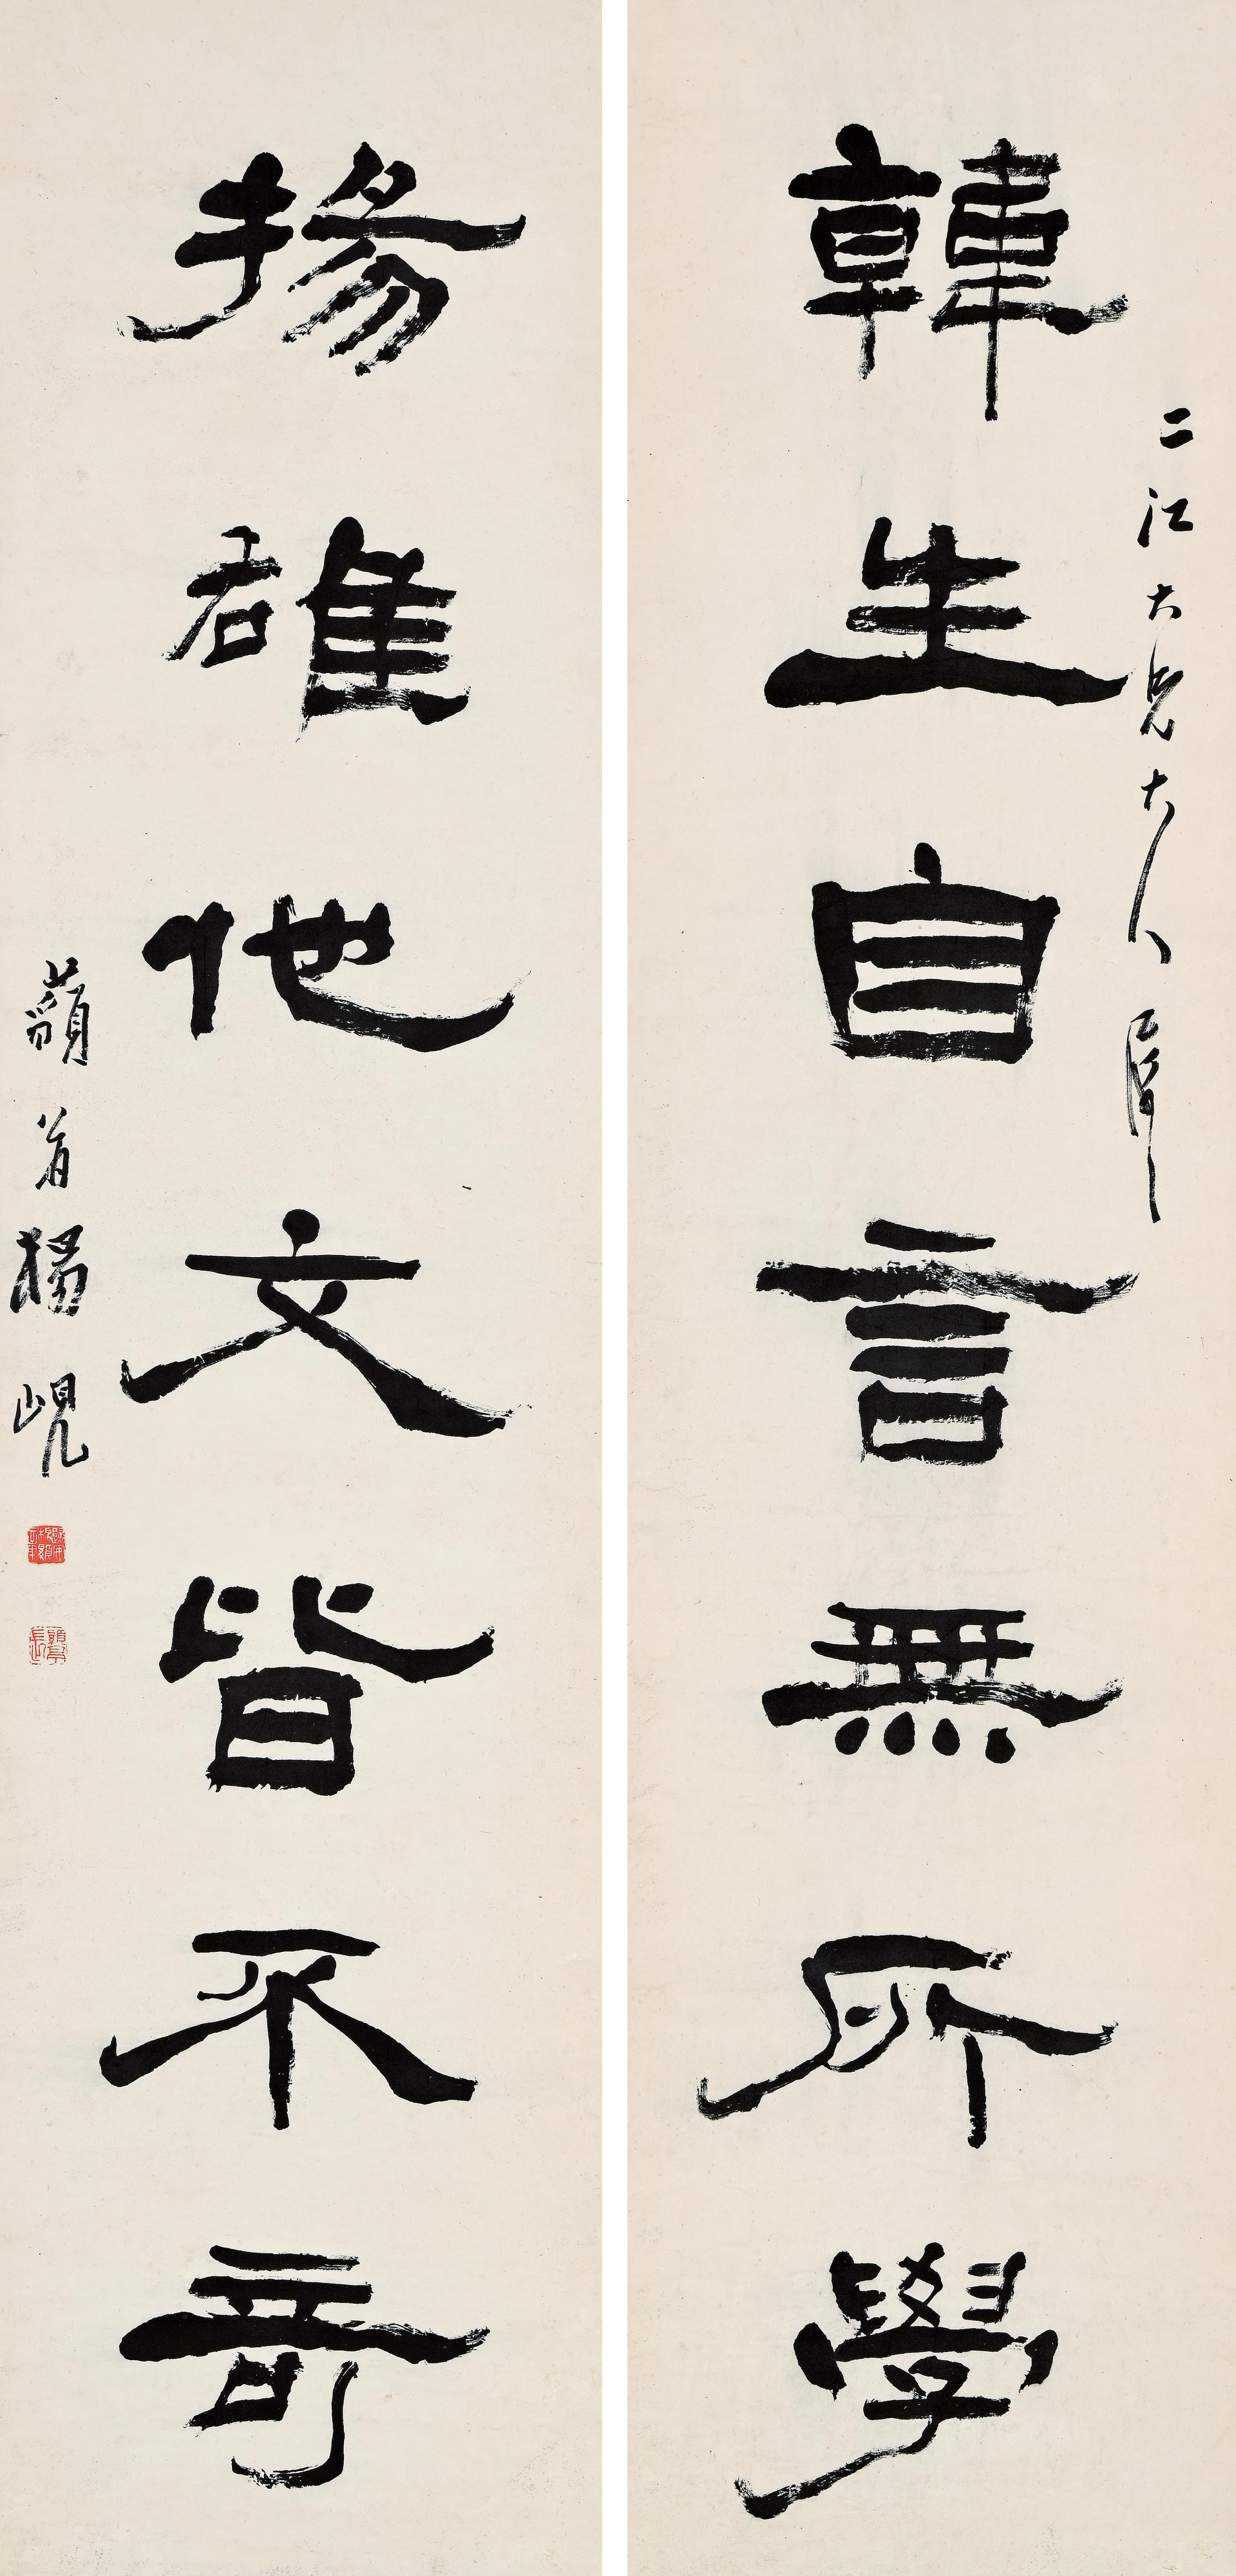 韓生自言無所學
二江大兄大人屬
揚雄他文皆不奇
藐翁楊峴